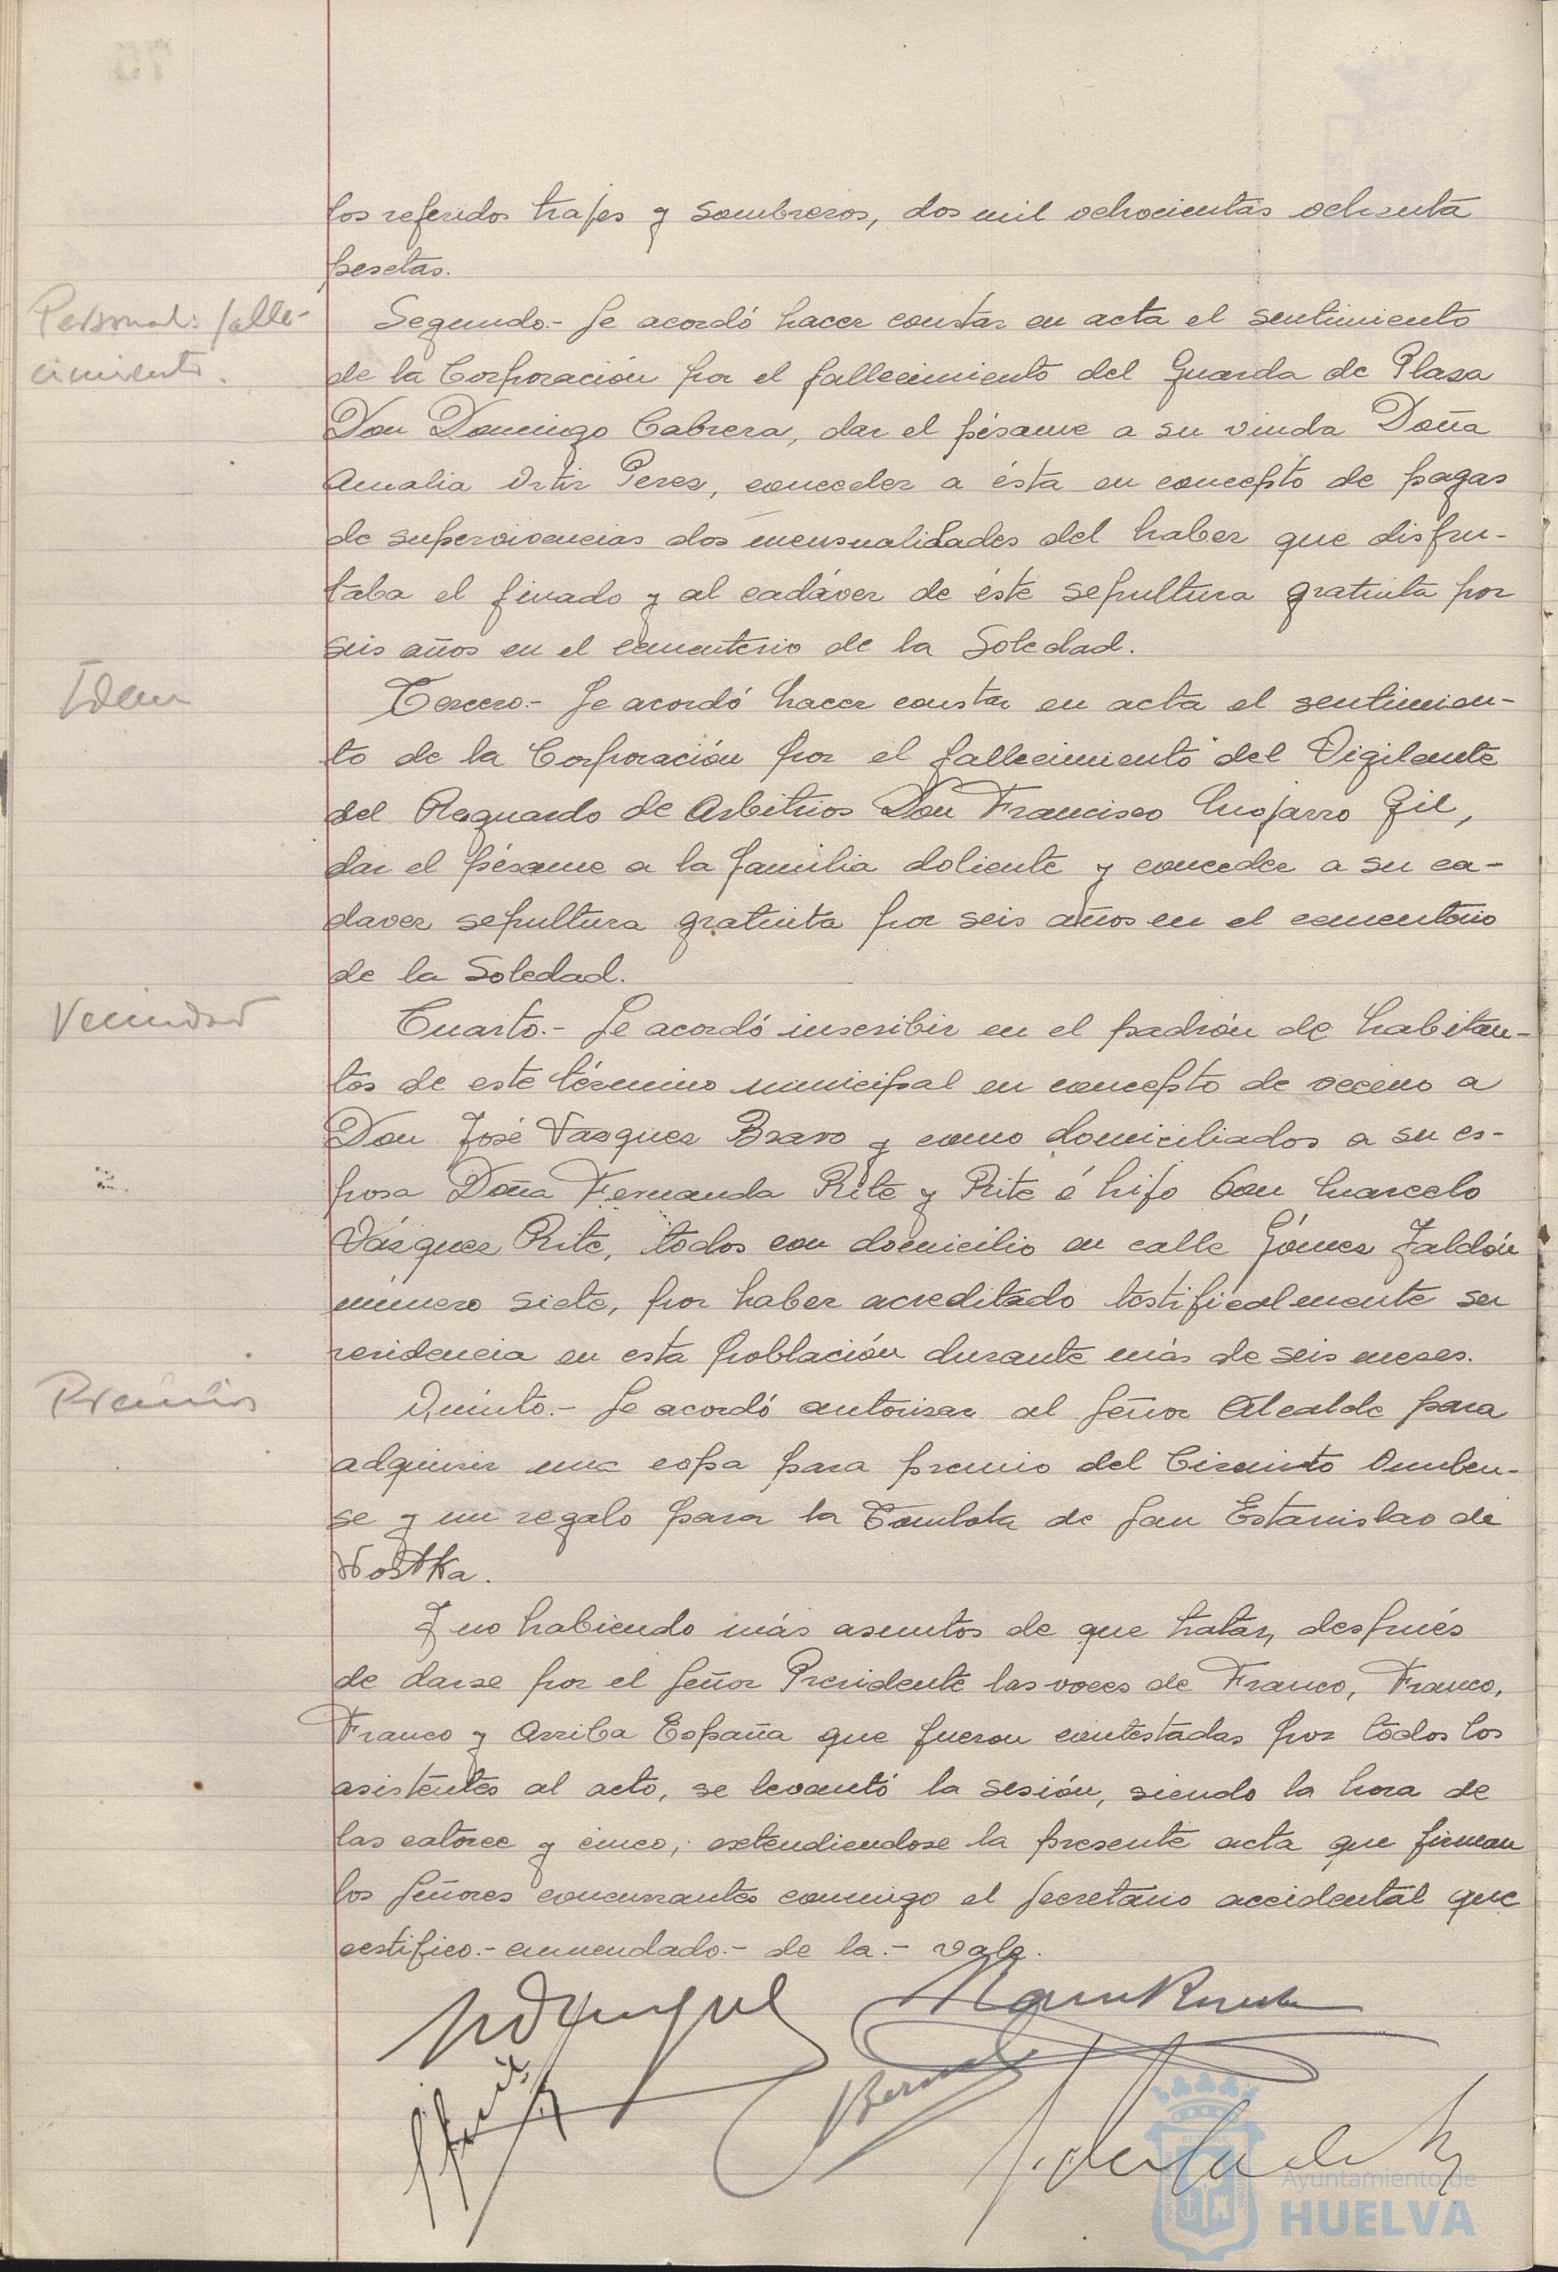 los referidos trajes y sombreros, dos mil ochocientas ochenta
pesetas.
Personal: falle-
cimiento.
Segundo.- Se acordó hacer constar en acta el sentimiento
de la Corporación por el fallecimiento del Guarda de Plaza
Don Domingo Cabrera, dar el pésame a su viuda Doña
Amalia Ortiz Perez, conceder a ésta en concepto de pagas
de supervivencias dos mensualidades del haber que disfru-
taba el finado y al cadáver de éste sepultura gratuita por
seis años en el cementerio de la Soledad.
Idem
Tercero.- Se acordó hacer constar en acta el sentimien-
to de la Corporación por el fallecimiento del Vigilante
del Resguardo de Arbitrios Don Francisco Mojarro Gil,
dar el pésame a la familia doliente y conceder a su ca-
daver sepultura gratuita por seis años en el cementerio
de la Soledad.
Vecindad
Cuarto.- Se acordó inscribir en el padrón de habitan-
tes de este término municipal en concepto de vecino a
Don José Vazquez Bravo y como domiciliados a su es-
posa Doña Fernanda Rite y Rite é hijo Don Marcelo
Vázquez Rite, todos con domicilio en calle Gómez Jaldón
número siete, por haber acreditado testificalmente su
residencia en esta población durante más de seis meses.
Premios
Quinto.- Se acordó autorizar al Señor Alcalde para
adquirir una copa para premio del Circuito Onuben-
se y un regalo para la Tombola de San Estanislao de
Kostka.
Y no habiendo más asuntos de que tratar, después
de darse por el Señor Presidente las voces de Franco, Franco,
Franco y Arriba España que fueron contestadas por todos los
asistentes al acto, se levantó la sesión, siendo la hora de
las catorce y cinco, extendiendose la presente acta que firman
los Señores concurrantes conmigo el Secretario accidental que
certifico.- enmendado.- de la.- vale.
Ayuntamiento de
HUELVA